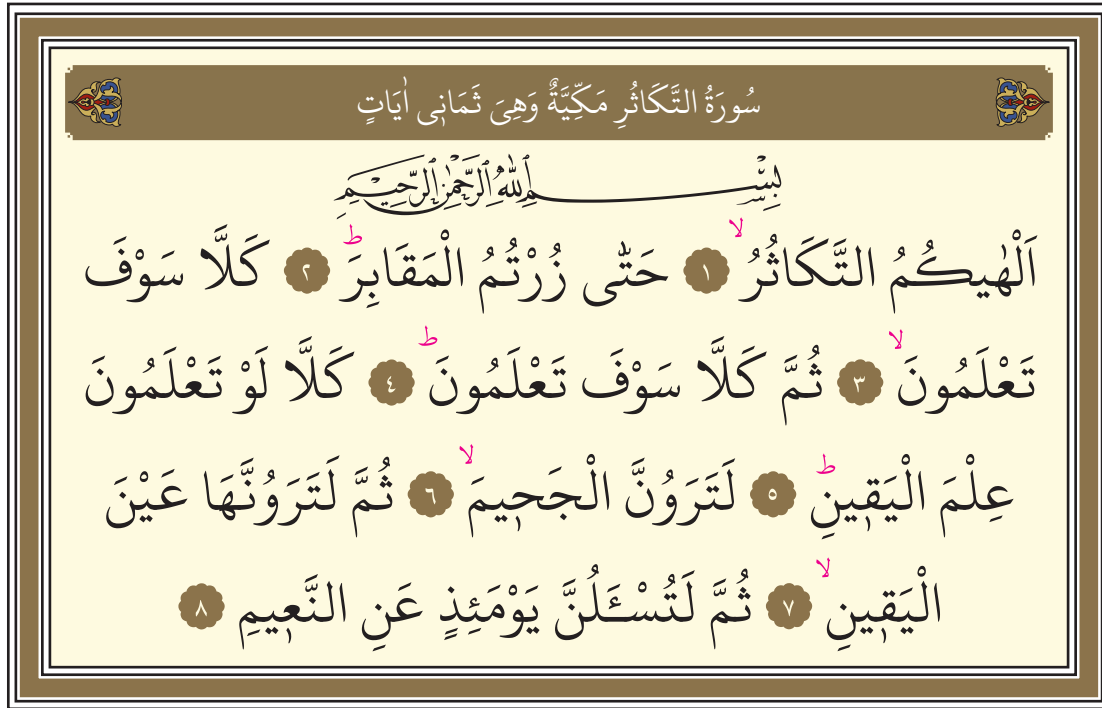 سُورَةُ التَّكَاثُرِ مَكِّيَّةٌ وَهِىَ ثَمَانٖى اٰيَاتٍ
بِسْمِ اللّٰهِ الرَّحْمٰنِ الرَّحٖيمِ
اَلْهٰيكُمُ التَّكَاثُرُۙ ١ حَتّٰى زُرْتُمُ الْمَقَابِرَؕ ٢ كَلَّا سَوْفَ
تَعْلَمُونَۙ ٣ ثُمَّ كَلَّا سَوْفَ تَعْلَمُونَؕ ٤ كَلَّا لَوْ تَعْلَمُونَ
عِلْمَ الْيَقٖينِؕ ٥ لَتَرَوُنَّ الْجَحٖيمَۙ ٦ ثُمَّ لَتَرَوُنَّهَا عَيْنَ
الْيَقٖينِۙ ٧ ثُمَّ لَتُسْـَٔلُنَّ يَوْمَئِذٍ عَنِ النَّعٖيمِ ٨